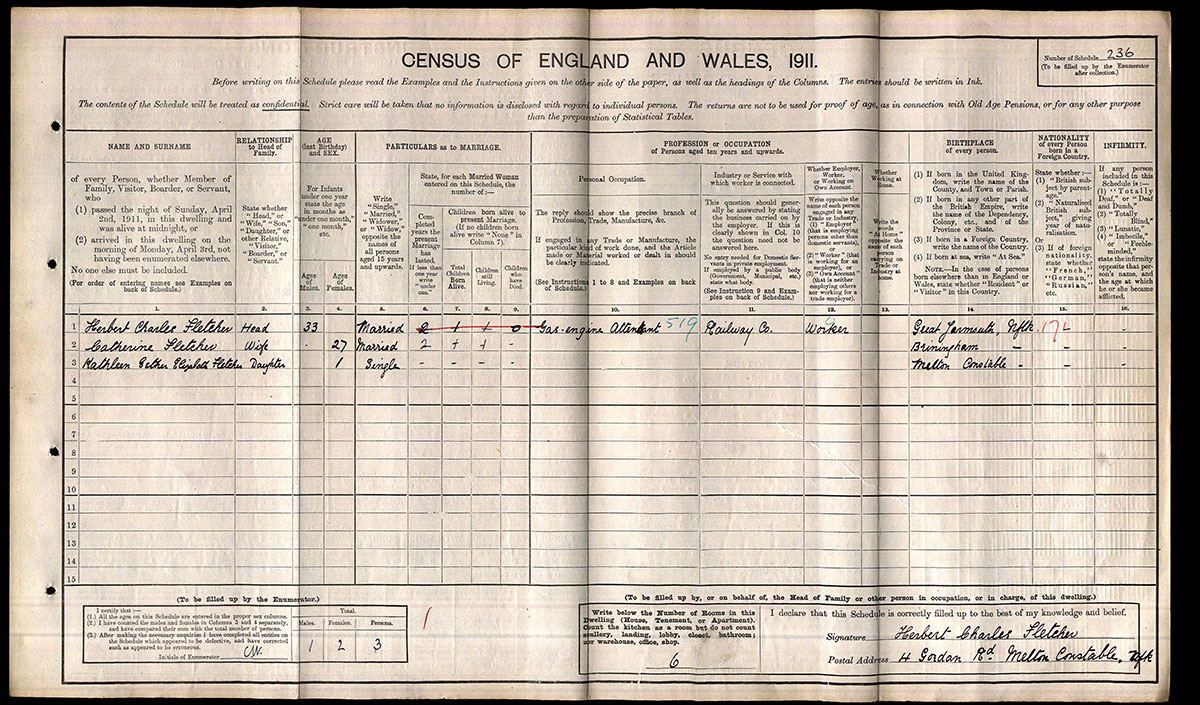 CENSUS OF ENGLAND AND WALES, 1911.
Number of Schedule 236
(To be filled up by the Enumerator
after collection.)
Before writing on this Schedule please read the Examples and the Instructions given on the other side of the paper, as well as the headings of the Columns. The entries should be written in Ink.
The contents of the Schedule will be treated as confidential. Strict care will be taken that no information is disclosed with regard to individual persons. The returns are not to be used for proof of age, as in connection with Old Age Pensions, or for any other purpose
than the preparation of Statistical Tables.
NAME AND SURNAME
of every Person, whether Member of
Family, Visitor, Boarder, or Servant,
who
(1) passed the night of Sunday, April
2nd, 1911, in this dwelling and
was alive at midnight, or
(2) arrived in this dwelling on the
morning of Monday, April 3rd, not
having been enumerated elsewhere.
No one else must be included.
(For order of entering names see Examples on
back of Schedule.)
RELATIONSHIP
to Head of
Family.
State whether
"Head," or
"Wife," "Son,"
"Daughter," or
other Relative,
"Visitor,"
"Boarder," or
"Servant."
AGE
(last Birthday)
and SEX.
For Infants
under one year
state the age
in months as
"under one month,"
"one month,"
etc.
Ages
of
Males.
Ages
of
Females.
PARTICULARS as to MARRIAGE.
Write
"Single,"
"Married,"
"Widower,"
or "Widow,"
opposite the
names of
all persons
aged 15 years
and upwards.
State, for each Married Woman
entered on this Schedule, the
number of:—
Com-
pleted years
the present
Marriage
has
lasted.
If less than
one year
write
"under
one."
Children born alive to
present Marriage.
(If no children born
alive write "None" in
Column 7).
Total
Children
Born
Alive.
Children
still
Living.
Children
who
have
Died.
PROFESSION or OCCUPATION
of Persons aged ten years and upwards.
Personal Occupation.
The reply should show the precise branch of
Profession, Trade, Manufacture, &c.
If engaged in any Trade or Manufacture, the
particular kind of work done, and the Article
made or Material worked or dealt in should
be clearly indicated.
(See Instructions 1 to 8 and Examples on back
of Schedule.)
Industry or Service with
which worker is connected.
This question should gener-
ally be answered by stating
the business carried on by
the employer. If this is
clearly shown in Col. 10
the question need not be
answered here.
No entry needed for Domestic Ser-
vants in private employment.
If employed by a public body
(Government, Municipal, etc.)
state what body.
(See Instruction 9 and Exam-
ples on back of Schedule.)
Whether Employer,
Worker,
or Working on
Own Account.
Write opposite the
name of each person
engaged in any
Trade or Industry,
(1) "Employer"
(that is employing
persons other than
domestic servants),
or
(2) "Worker" (that
is working for an
employer), or
(3) "Own Account"
(that is neither
employing others
nor working for a
trade employer).
Whether
Working at
Home.
Write the
words
"At Home"
opposite the
name of each
person
carrying on
Trade or
Industry at
Home.
BIRTHPLACE
of every person.
(1) If born in the United King-
dom, write the name of the
County, and Town or Parish.
(2) If born in any other part of
the British Empire, write
the name of the Dependency,
Colony, etc., and of the
Province or State.
(3) If born in a Foreign Country,
write the name of the Country.
(4) If born at sea, write "At Sea."
NOTE.—In the case of persons
born elsewhere than in England or
Wales, state whether "Resident" or
"Visitor" in this Country.
NATIONALITY
of every Person
born in a
Foreign Country.
State whether:—
(1) "British sub-
ject by parent-
age."
(2) "Naturalised
British sub-
ject," giving
year of natu-
ralisation.
Or
(3) If of foreign
nationality,
state whether
"French,"
"German,"
"Russian,"
etc.
INFIRMITY.
If any person
included in this
Schedule is:—
(1) "Totally
Deaf," or "Deaf
and Dumb,"
(2) "Totally
Blind,"
(3) "Lunatic,"
(4) "Imbecile,"
or "Feeble-
minded,"
state the infirmity
opposite that per-
son's name, and
the age at which
he or she became
afflicted.
1. 2. 3. 4. 5. 6. 7. 8. 9. 10. 11. 12. 13. 14. 15. 16.
1 Herbert Charles Fletcher Head 33 Married 2 1 1 0 Gas-engine Attendant 519 Railway Co. Worker Great Yarmouth, Nflk. 17 - -
2 Catherine Fletcher Wife - 27 Married 2 1 1 - Briningham - - -
3 Kathleen Esther Elizabeth Fletcher Daughter 1 Single - - - Melton Constable - - -
4
5
6
7
8
9
10
11
12
13
14
15
(To be filled up by the Enumerator.)
I certify that:—
(1.) All the ages on this Schedule are entered in the proper sex columns.
(2.) I have counted the males and females in Columns 3 and 4 separately,
and have compared their sum with the total number of persons.
(3.) After making the necessary enquiries I have completed all entries on
the Schedule which appeared to be defective, and have corrected
such as appeared to be erroneous.
Initials of Enumerator CW.
Total.
Males. Females. Persons.
1 2 3
(To be filled up by, or on behalf of, the Head of Family or other person in occupation, or in charge, of this dwelling.)
Write below the Number of Rooms in this
Dwelling (House, Tenement, or Apartment).
Count the kitchen as a room but do not count
scullery, landing, lobby, closet, bathroom;
nor warehouse, office, shop.
6
I declare that this Schedule is correctly filled up to the best of my knowledge and belief.
Signature Herbert Charles Fletcher
Postal Address 4 Gordon Rd. Melton Constable, Nflk